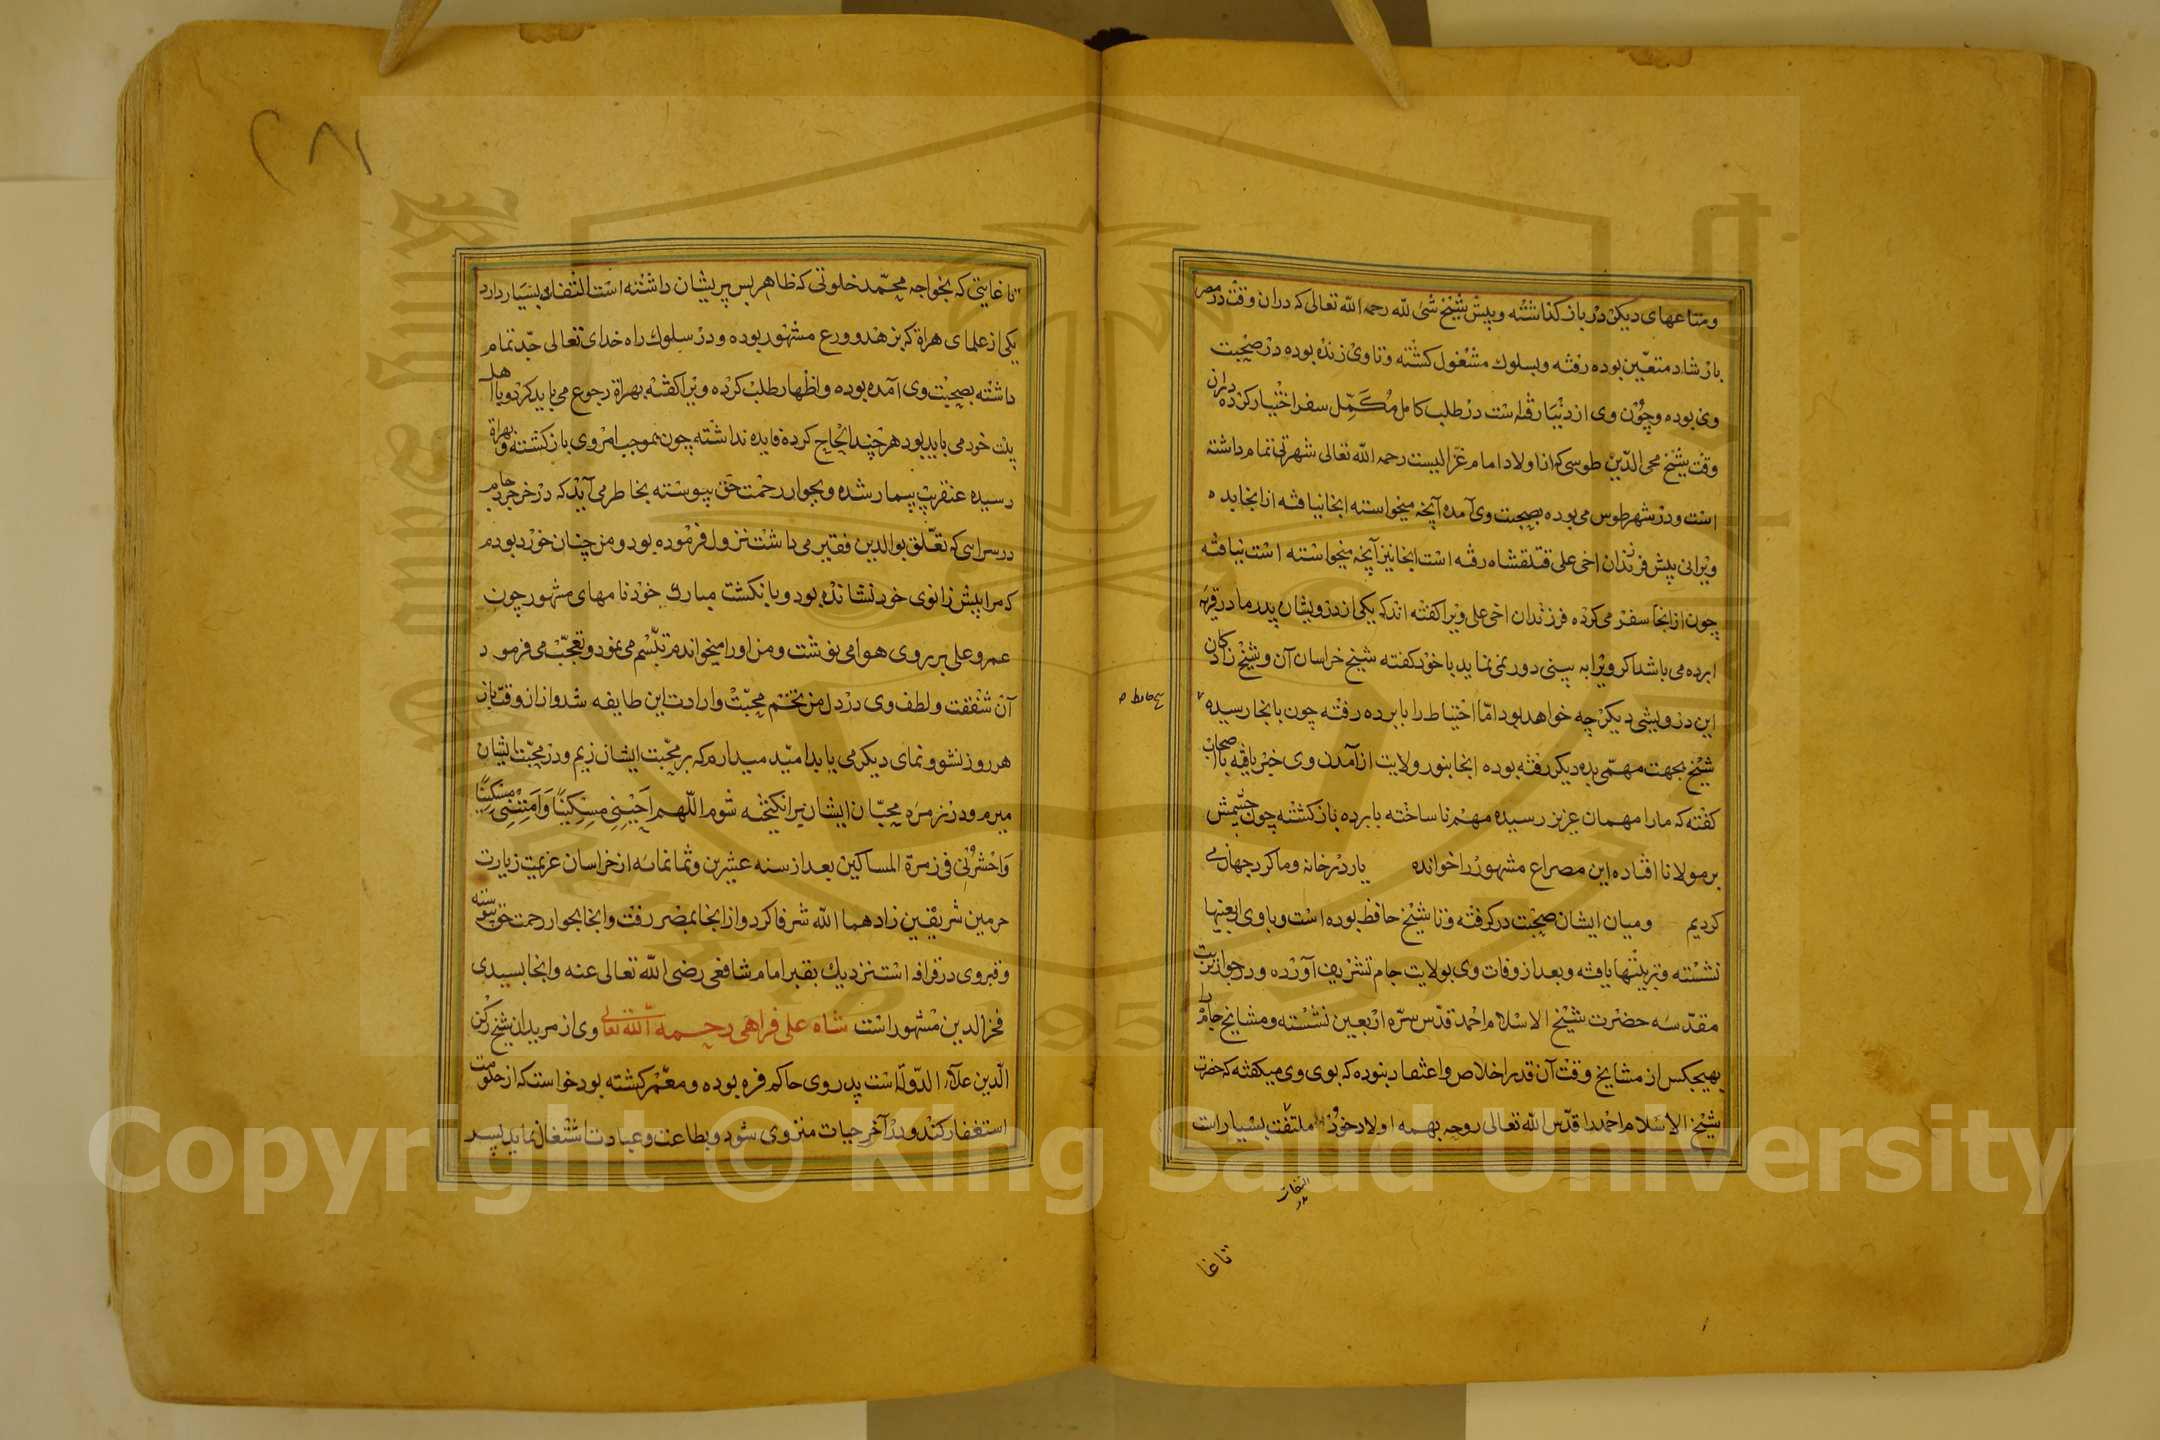 ومتاعهای دیکر درباز کذاشته وپیش شیخ شی لله رحمه الله تعالی که دران وقت در مصر
بارشاد متعین بوده رفته وبسلوك مشغول کشته وتا وی زنده بوده در صحبت
وی بوده وچون وی از دنیا رفته است در طلب کامل مکمل سفر اختیار کرده دران
وقت شیخ محی الدین طوسی که از اولاد امام غزالیست رحمه الله تعالی شهرتی تمام داشته
است ودر شهر طوس می بوده بصحبت وی آمده آنچه میخواسته انجا نیافته از انجا بده
ویرانی پیش فرزندان اخی علی قتلقشاه رفته است انجا نیز آنچه میخواسته است نیافته
چون از انجا سفر می کرده فرزندان اخی علی ویرا کفته اند که یکی از درویشان پدر ما در قریه
ابرده می باشد اکر ویرا به بینی دور نمی نماید با خود کفته شیخ خراسان آن وشیخ زادکان
این درویشی دیکر چه خواهد بود اما احتیاط را بابرده رفته چون بانجا رسیده
شیخ بجهت مهمی بده دیکر رفته بوده انجا بنور ولایت از آمدن وی خبر یافته با اصحاب
کفته که ما را مهمان عزیز رسیده مهم ناساخته بابرده باز کشته چون چشمش
بر مولانا افتاده این مصراع مشهور را خوانده یار در خانه وما کرد جهان می
کردیم ومیان ایشان صحبت در کرفته وتا شیخ حافظ بوده است وبا وی اربعینها
نشسته وتربیتها یافته وبعد از وفات وی بولایت جام تشریف آورده ودر جوار تربت
مقدسه حضرت شیخ الاسلام احمد قدس سره اربعین نشسته ومشایخ جام را
بهیچکس از مشایخ وقت آن قدر اخلاص واعتقاد نبوده که بوی وی میکفته که حضرت
شیخ الاسلام احمد قدس الله تعالی روحه بهمه اولاد خود ملتفت بسیار است
شیخ حافظ
التفات
تاغا
۲۸۱
تا غایتی که بخواجه محمد خلوتی که ظاهر بس پریشان داشته است التفات بسیار دارد
یکی از علمای هراة که بزهد وورع مشهور بوده ودر سلوك راه خدای تعالی جد تمام
داشته بصحبت وی آمده بوده واظهار طلب کرده ویرا کفته بهراة رجوع می باید کرد وبا اهل
بیت خود می باید بود هر چند الحاح کرده فایده نداشته چون بموجب امر وی باز کشته وبهراة
رسیده عنقریب بیمار شده وبجوار رحمت حق پیوسته بخاطر می آید که در خرجرد جام
در سرایی که تعلق بوالدین فقیر می داشت نزول فرموده بود ومن چنان خورد بودم
که مرا پیش زانوی خود نشانده بود وبانکشت مبارك خود نامهای مشهور چون
عمر وعلی بر روی هوا می نوشت ومن اورا میخواندم تبسم می نمود وتعجب می فرمود
آن شفقت ولطف وی در دل من تخم محبت وارادت این طایفه شد واز ان وقت باز
هر روز نشو ونمای دیکر می یابد امید میدارم که بر محبت ایشان زیم ودر محبت ایشان
میرم ودر زمره محبان ایشان برانکیخته شوم اللهم احینی مسکینا وامتنی مسکینا
واحشرنی فی زمرة المساکین بعد از سنه عشرین وثمانمائه از خراسان عزیمت زیارت
حرمین شریفین زادهما الله شرفا کرد واز انجا بمصر رفت وانجا بجوار رحمت حق پیوسته
وقبر وی در قرافه است نزدیك بقبر امام شافعی رضی الله تعالی عنه وانجا بسیدی
فخر الدین مشهور است شاه علی فراهی رحمه الله تعالی وی از مریدان شیخ رکن
الدین علاء الدوله است پدر وی حاکم فره بوده ومعمر کشته بود خواست که از حکومت
استغفار کند ودر آخر حیات منزوی شود وبطاعت وعبادت اشتغال نماید پسر
Copyright © King Saud University
1957